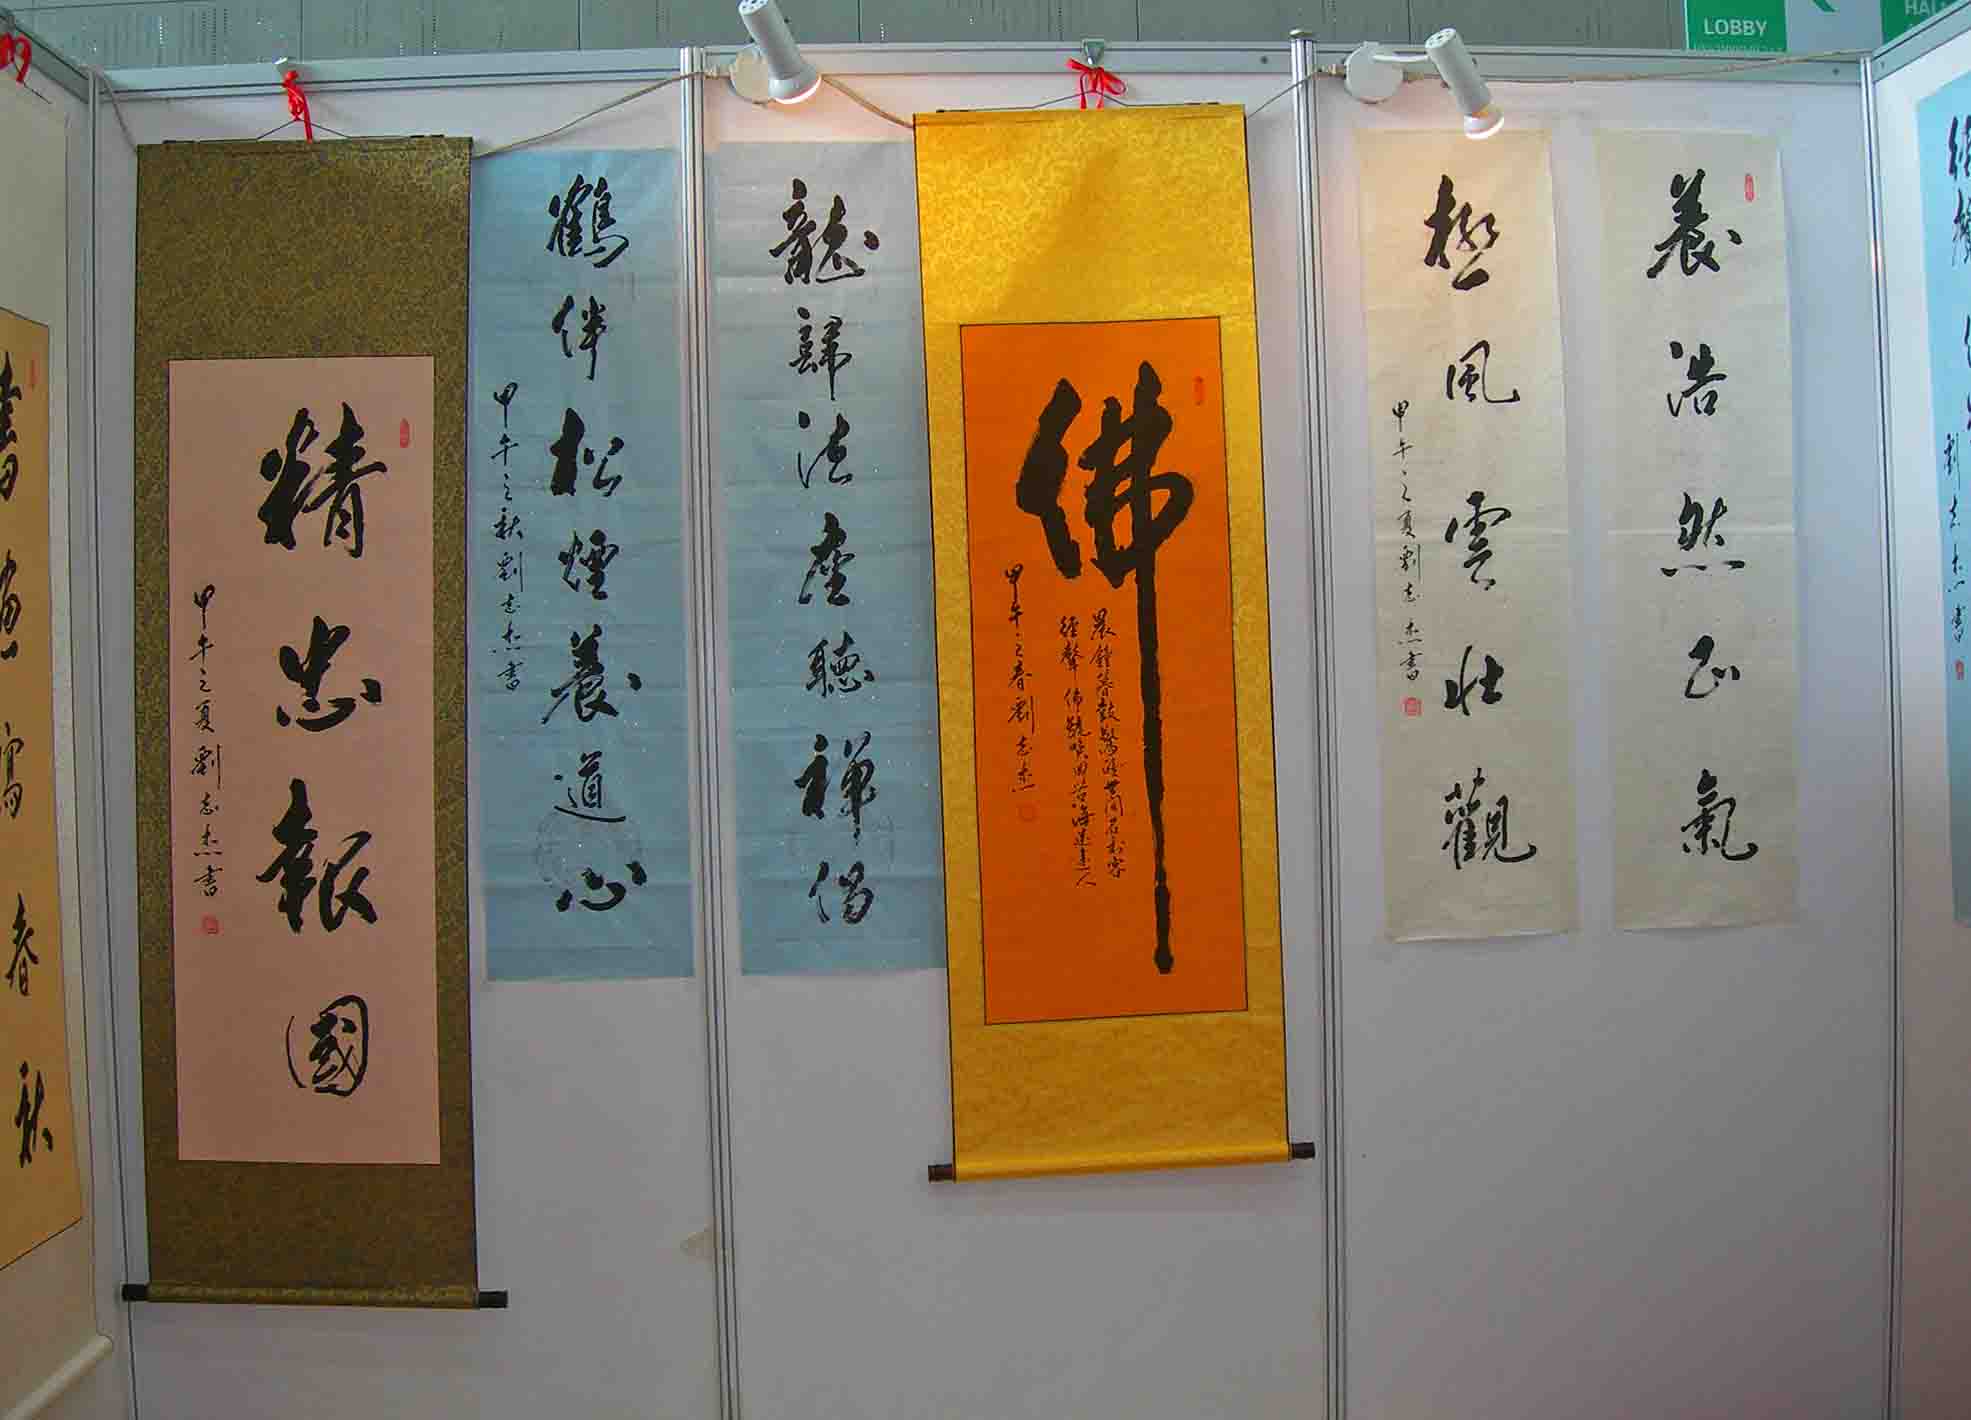 LOBBY
養浩然正氣
極風雲壯觀
甲午之夏劉志杰書
佛
晨鐘暮鼓驚醒世間名利客
經聲佛號喚回苦海迷途人
甲午之春劉志杰
龍歸法座聽禪偈
鶴伴松煙養道心
甲午之秋劉志杰書
精忠報國
甲午之夏劉志杰書
春秋
劉志杰書